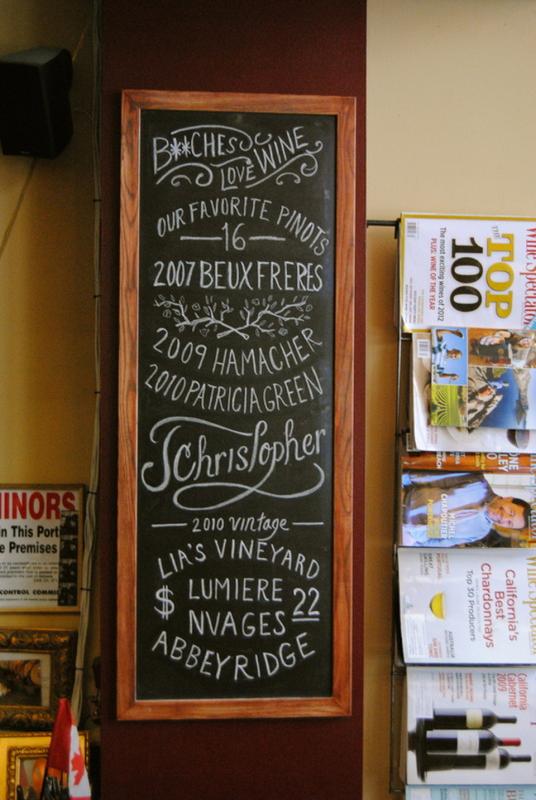 B**CHES
LOVE WINE
OUR FAVORITE PINOTS
16
2007 BEUX FRERES
2009 HAMACHER
2010 PATRICIA GREEN
JChristopher
2010 vintage
LIA'S VINEYARD
$ LUMIERE 22
NVAGES
ABBEY RIDGE
MINORS
in This Port
e Premises
CONTROL COMMI
Wine Spectator
THE TOP
100
The most exciting wines of 2012
PLUS: WINE OF THE YEAR
MICHEL
CHAPOUTIER
California's
Best
Chardonnays
Top 30 Producers
California
Cabernet
2009